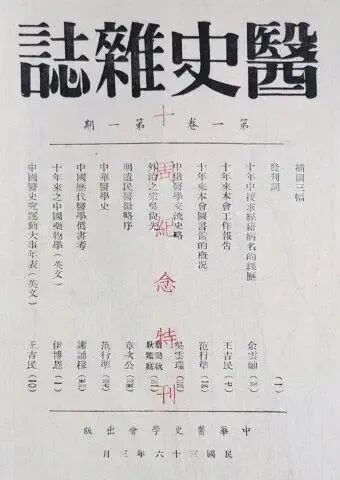 醫史雜誌
第一卷第一期
十周紀念特刊
插圖三幅
發刊詞 (一)
十年中搜求經籍病名的經歷 余雲岫
十年來本會工作報告 王吉民 (七)
十年來本會圖書館的概況 范行準
中俄醫學交流史略 吳雲瑞
外治之宗吳尚先 耿鑑庭
明遺民醫徵略序 章次公
中華醫學史 范行準
中國歷代醫學偽書考 謝誦穆
十年來之中國藥物學(英文) 伊博恩 (一)
中國醫史研究運動大事年表(英文) 王吉民 (10)
中華醫史學會出版
民國三十六年三月